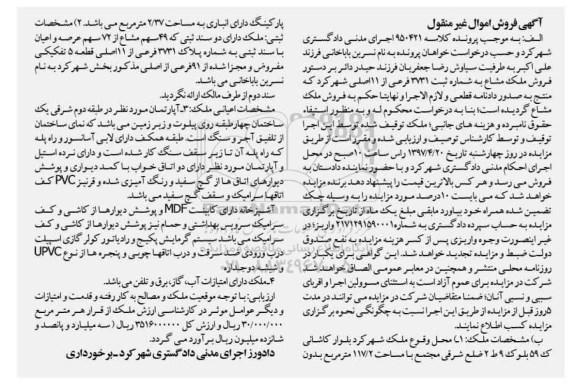 آگهی فروش اموال غیر منقول
الف: به موجب پرونده کلاسه ۹۵۰۴۲۱ اجرای مدنی دادگستری
شهرکرد و حسب درخواست خواهان پرونده به نام نسرین باباخانی فرزند
علی اکبر به طرفیت سیاوش رضا جعفریان فرزند حیدر دائر بر دستور
فروش ملک مشاع به شماره ثبت ۳۷۳۱ فرعی از ۱۱ اصلی شهرکرد که
منتج به صدور دادنامه قطعی و لازم الاجرا و نهایتا حکم به فروش ملک
مشاع گردیده است؛ بنا به درخواست محکوم له و به منظور استیفاء
حقوق نامبرده و هزینه های جانبی؛ ملک توقیف شده توسط این اجرا
توقیف و توسط کارشناس توصیف و ارزیابی شده و مقرر است از طریق
مزایده در روز چهارشنبه تاریخ ۱۳۹۷/۴/۲۰ راس ساعت ۱۰ صبح در محل
اجرای احکام مدنی دادگستری شهرکرد و با حضور نماینده دادستان به
فروش می رسد و هر کس بالاترین قیمت را پیشنهاد دهد برنده مزایده
خواهد شد که می بایست ۱۰ درصد مورد مزایده را به وسیله چک
تضمین شده همراه خود بیاورد مابقی مبلغ یک ماه از تاریخ برگزاری
مزایده به حساب سپرده دادگستری به شماره ۲۱۷۱۲۹۱۵۹۰۰۰۱ واریز؛ در
غیر اینصورت وجوه واریزی پس از کسر هزینه مزایده به نفع صندوق
دولت ضبط و مزایده تجدید خواهد شد. این آگهی برای یکبار در
روزنامه محلی منتشر و همچنین در معابر عمومی الصاق خواهد شد
شرکت در مزایده برای عموم آزاد است به استثنای مسوولین اجرا و اقربای
سببی و نسبی آنان؛ ضمنا متقاضیان شرکت در مزایده می توانند در مدت
۵ روز قبل از مزایده از طریق این اجرا نسبت به چگونگی نحوه برگزاری
مزایده کسب اطلاع نمایند.
ب) مشخصات ملک: ۱ـ محل وقوع ملک شهرکرد بلوار کاشانی
ک ۵۹ بلوک ۹ ط ۲ ضلع شرقی مجتمع با مساحت ۱۱۷/۲ مترمربع بدون
پارکینگ دارای انباری به مساحت ۲/۳۷ مترمربع می باشد. ۲) مشخصات
ثبتی: ملک دارای دو سند ثبتی که ۴۹ سهم مشاع از ۷۲ سهم عرصه و اعیان
با سند ثبتی به شماره پلاک ۳۷۳۱ فرعی از ۱۱ اصلی قطعه ۵ تفکیکی
مفروض و مجزا شده از ۹۱ فرعی از اصلی مذکور بخش شهرکرد به نام
نسرین باباخانی می باشد.
سند دوم از طرف مالک ارائه نگردید.
مشخصات اعیانی ملک: ۳ـ آپارتمان مورد نظر در طبقه دوم شرقی یک
ساختمان چهار طبقه روی پیلوت و زیرزمین می باشد که نمای ساختمان
از تلفیق آجر و سنگ است. طبقه همکف دارای لابی آسانسور و راه پله
که راه پله آن تا زیر سقف سنگ کار شده است و دارای نرده استیل
و آپارتمان مورد نظر دارای دو اتاق خواب با کمد دیواری و پوشش
دیوارهای اتاق ها از گچ سفید و رنگ آمیزی شده و قرنیز PVC کف
اتاقها سرامیک و سقف گچ سفید می باشد.
آشپزخانه دارای کابینت MDF و پوشش دیوارها از کاشی و کف
سرامیک سرویس بهداشتی و حمام نیز پوشش دیوارها از کاشی و کف
سرامیک می باشد سیستم گرمایش پکیج و رادیاتور کولر گازی اسپیلت
درب ورودی ضد سرقت و درب اتاقها چوبی و پنجره ها از نوع UPVC
و شیشه دوجداره
۴ـ ملک دارای امتیازات آب، گاز، برق و تلفن می باشد.
ارزیابی: با توجه موقعیت ملک و مصالح به کار رفته و قدمت و امتیازات
و دیگر عوامل موثر در کارشناسی ارزش ملک از قرار هر متر مربع
۳۰/۰۰۰/۰۰۰ ریال و ارزش کل ۳۵۱۶۰۰۰۰۰۰ ریال ( سه میلیارد و پانصد و
شانزده میلیون ریال برآورد می گردد.
دادورز اجرای مدنی دادگستری شهرکرد ـ برخورداری